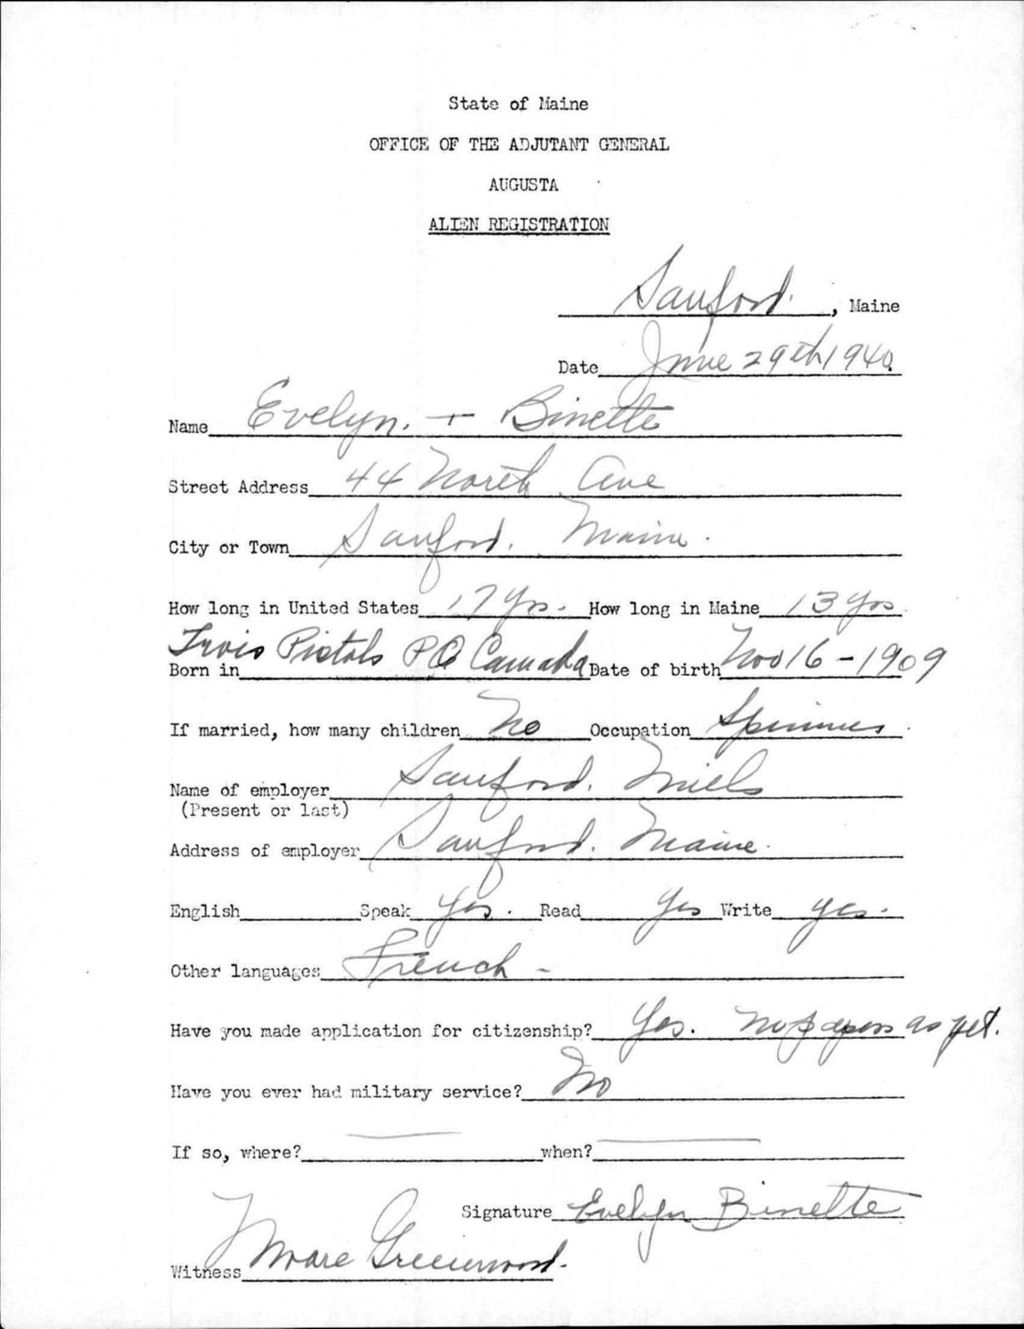 State of Maine
OFFICE OF THE ADJUTANT GENERAL
AUGUSTA
ALIEN REGISTRATION
Sanford. , Maine
Date June 29th 1940.
Name Evelyn. + Binette
Street Address 44 North Ave
City or Town Sanford. Maine.
How long in United States 17 Yrs. How long in Maine 13 Yrs
Born in Trois Pistols PQ Canada Date of birth Nov 16 - 1909
If married, how many children No Occupation
Name of employer Sanford. Mills
(Present or last)
Address of employer Sanford. Maine.
English Speak Yes. Read Yes Write yes.
Other languages French -
Have you made application for citizenship? Yes. no papers as yet.
Have you ever had military service? No
If so, where? when?
Signature Evelyn Binette
Witness Greenwood.